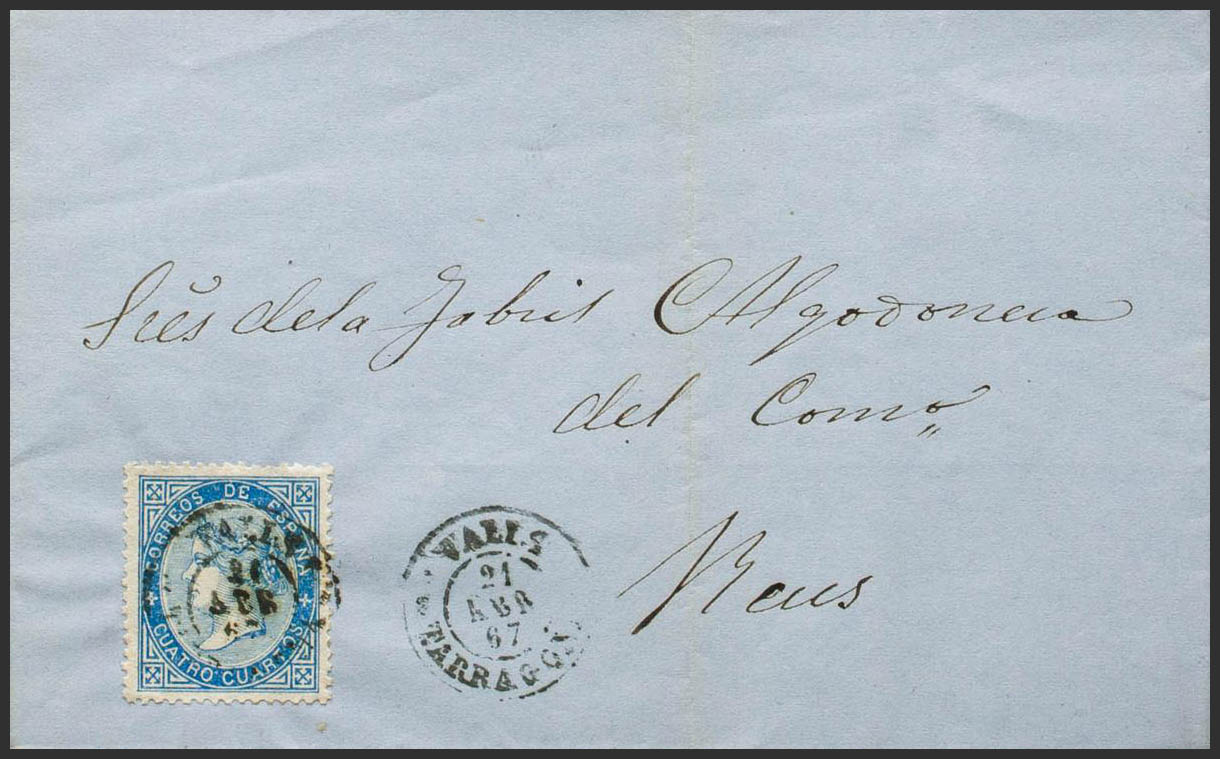 Sres dela Fabril Algodonera
del Como
Reus
CORREOS DE ESPAÑA
CUATRO CUARTOS
VALLS
21
ABR
67
TARRAGONA